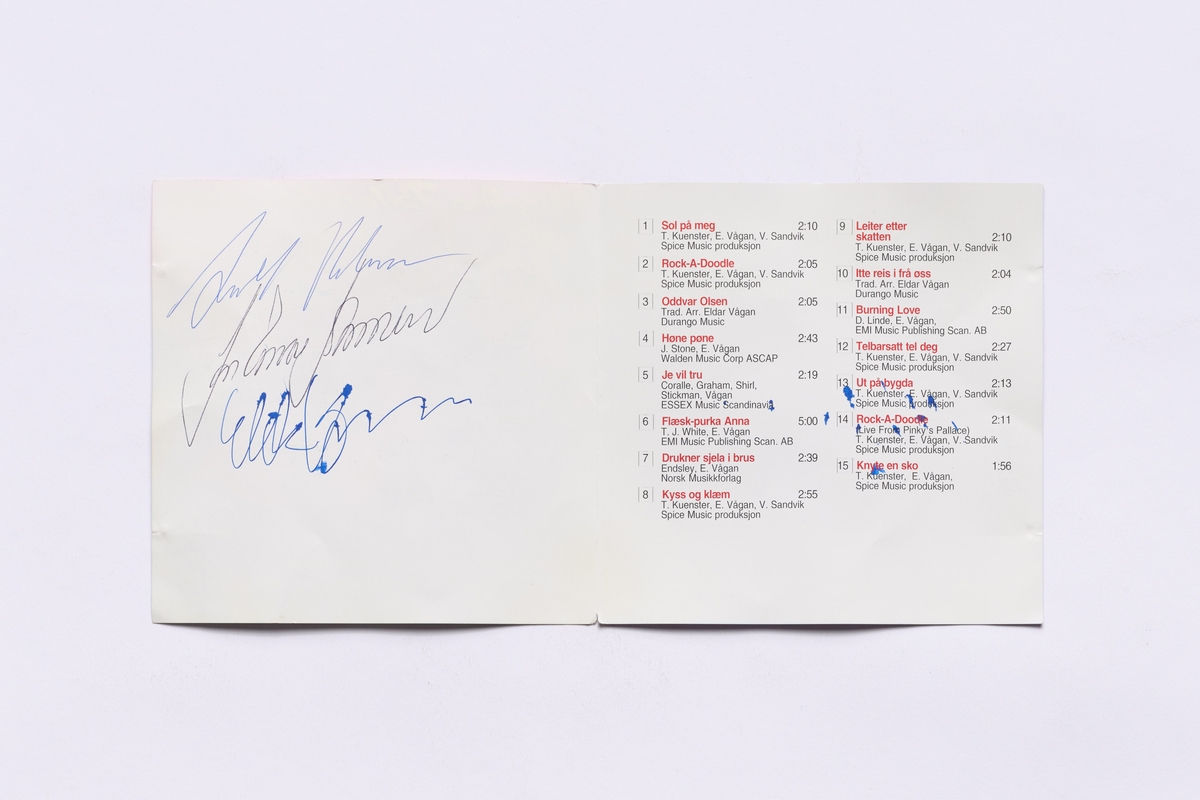 1 Sol på meg 2:10
T. Kuenster, E. Vågan, V. Sandvik
Spice Music produksjon
2 Rock-A-Doodle 2:05
T. Kuenster, E. Vågan, V. Sandvik
Spice Music produksjon
3 Oddvar Olsen 2:05
Trad. Arr. Eldar Vågan
Durango Music
4 Høne pøne 2:43
J. Stone, E. Vågan
Walden Music Corp ASCAP
5 Je vil tru 2:19
Coralle, Graham, Shirl,
Stickman, Vågan
ESSEX Music Scandinavia
6 Flæsk-purka Anna 5:00
T. J. White, E. Vågan
EMI Music Publishing Scan. AB
7 Drukner sjela i brus 2:39
Endsley, E. Vågan
Norsk Musikkforlag
8 Kyss og klæm 2:55
T. Kuenster, E. Vågan, V. Sandvik
Spice Music produksjon
9 Leiter etter
skatten 2:10
T. Kuenster, E. Vågan, V. Sandvik
Spice Music produksjon
10 Itte reis i frå øss 2:04
Trad. Arr. Eldar Vågan
Durango Music
11 Burning Love 2:50
D. Linde, E. Vågan,
EMI Music Publishing Scan. AB
12 Telbarsatt tel deg 2:27
T. Kuenster, E. Vågan, V. Sandvik
Spice Music produksjon
13 Ut på bygda 2:13
T. Kuenster, E. Vågan, V. Sandvik
Spice Music produksjon
14 Rock-A-Doodle 2:11
(Live From Pinky's Pallace)
T. Kuenster, E. Vågan, V. Sandvik
Spice Music produksjon
15 Knyte en sko 1:56
T. Kuenster, E. Vågan,
Spice Music produksjon